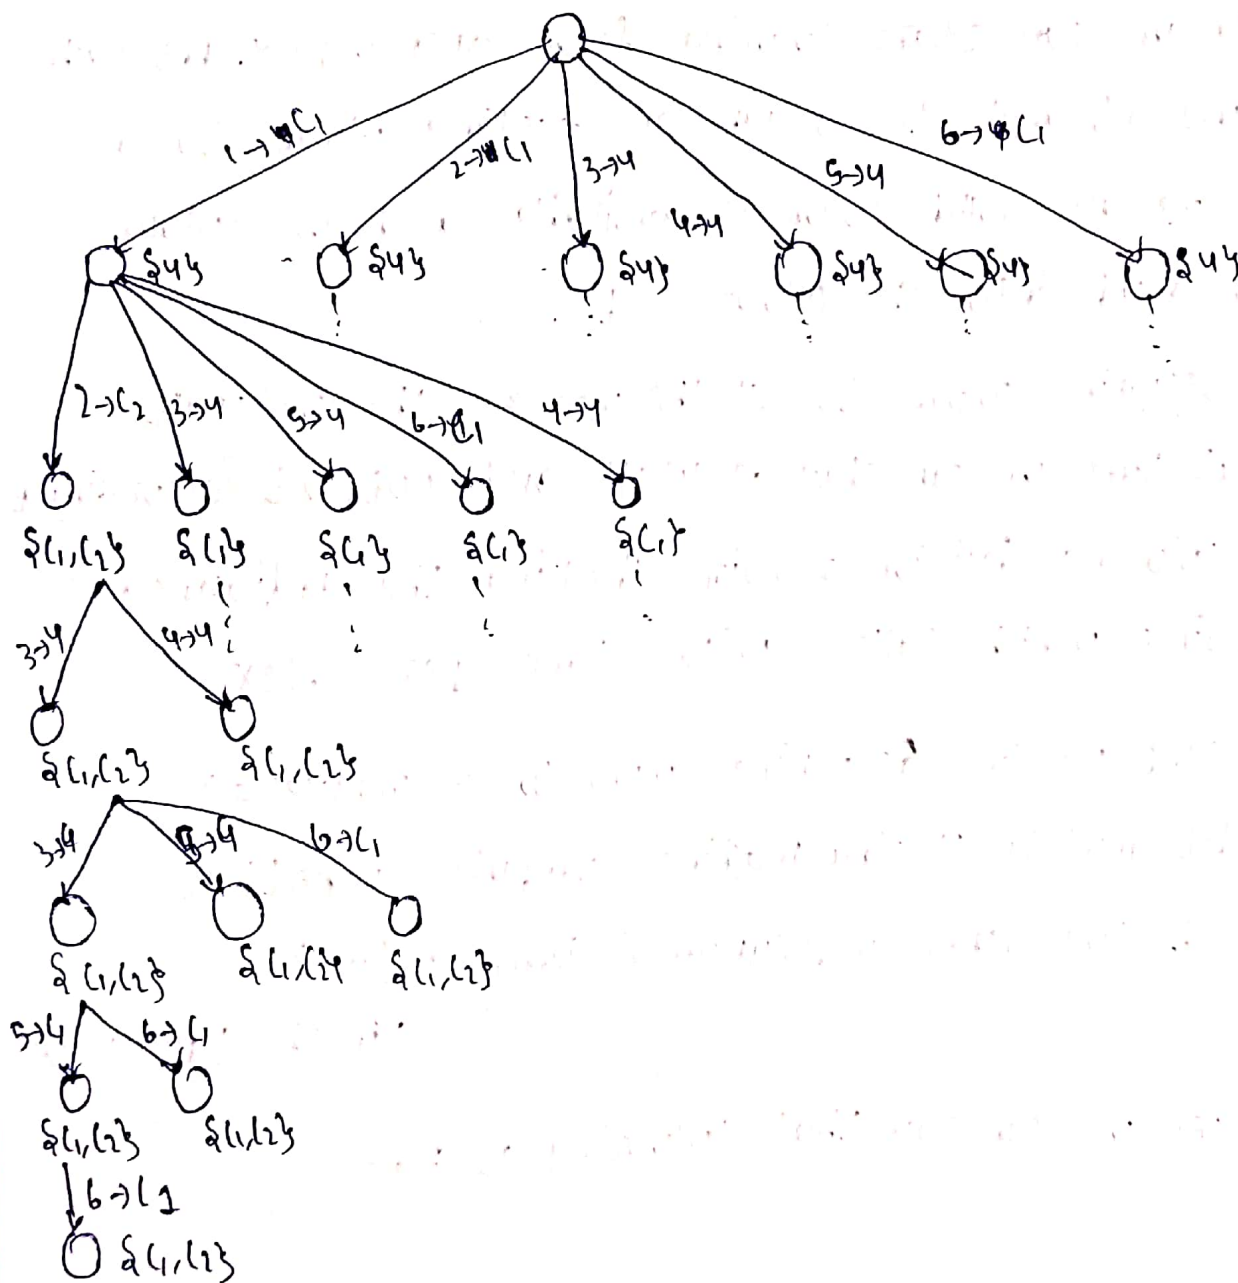 1→C₁ 2→C₁ 3→C₁ 4→C₁ 5→C₁ 6→C₁
{C₁} {C₁} {C₁} {C₁} {C₁} {C₁}
2→C₂ 3→C₁ 5→C₁ 6→C₁ 4→C₁
{C₁,C₂} {C₁} {C₁} {C₁} {C₁}
3→C₁ 4→C₁
{C₁,C₂} {C₁,C₂}
3→C₁ 5→C₁ 6→C₁
{C₁,C₂} {C₁,C₂} {C₁,C₂}
5→C₁ 6→C₁
{C₁,C₂} {C₁,C₂}
6→C1
{C₁,C₂}